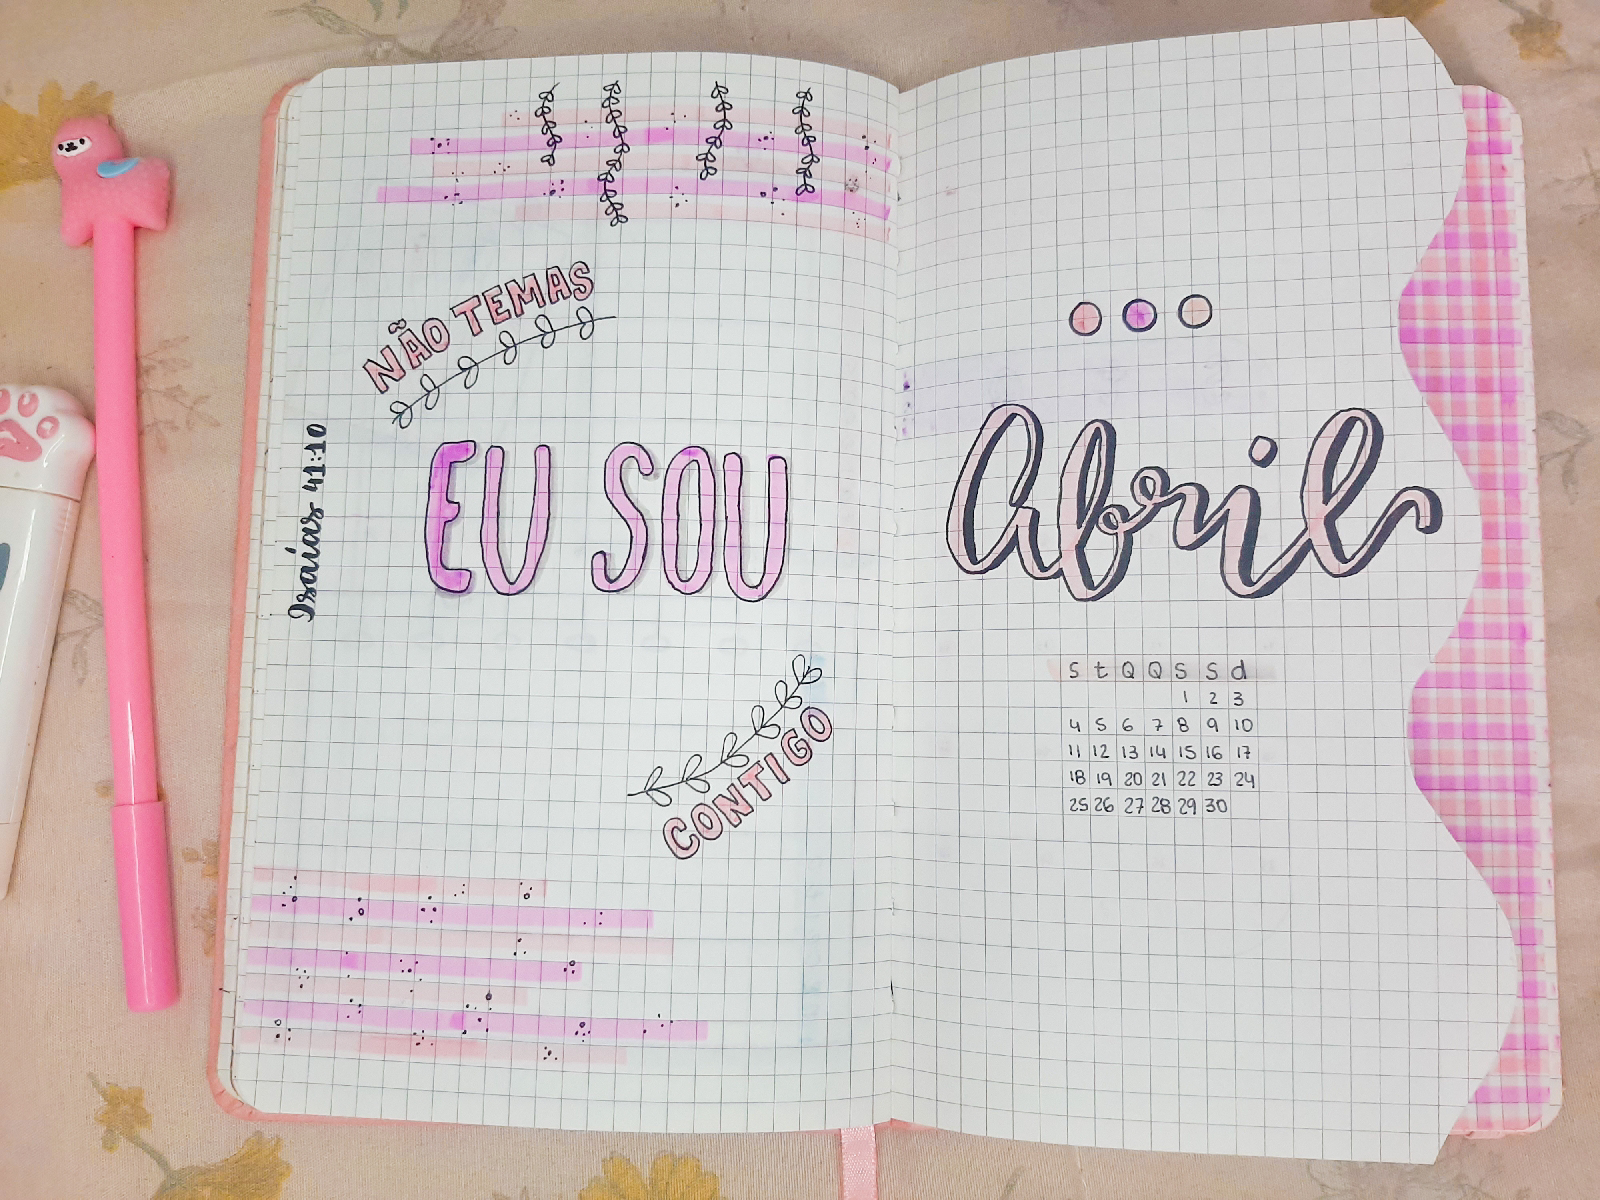 NÃO TEMAS
EU SOU
CONTIGO
Isaías 41:10
Abril
S t Q Q S S d
1 2 3
4 5 6 7 8 9 10
11 12 13 14 15 16 17
18 19 20 21 22 23 24
25 26 27 28 29 30